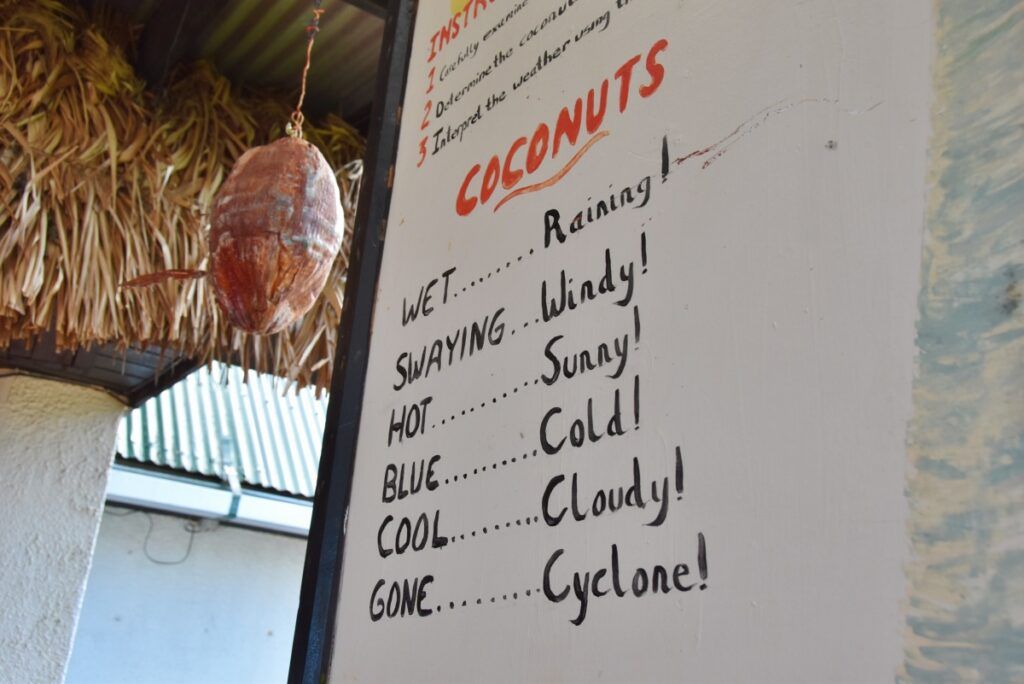 1 Carefully examine
2 Determine the coconut
3 Interpret the weather using
COCONUTS
WET.......... Raining!
SWAYING...Windy!
HOT.......... Sunny!
BLUE......... Cold!
COOL......... Cloudy!
GONE......... Cyclone!